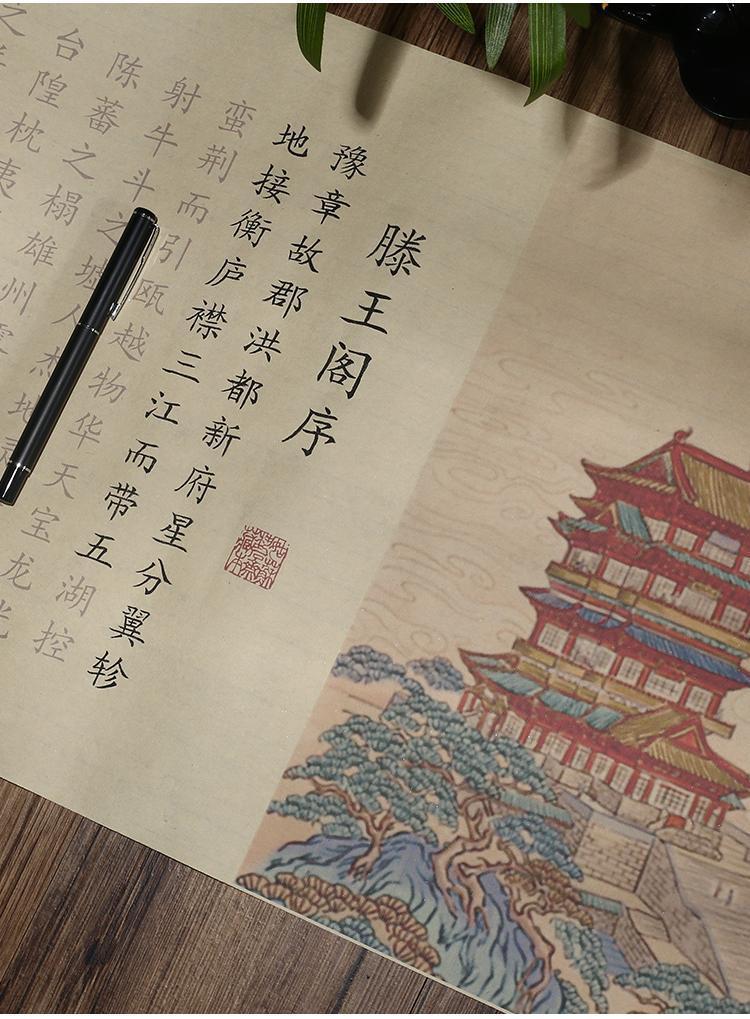 滕王阁序
豫章故郡洪都新府星分翼轸
地接衡庐襟三江而带五湖控
蛮荆而引瓯越物华天宝龙光
射牛斗之墟人杰地灵
陈蕃之榻雄州雾
台隍枕夷
之